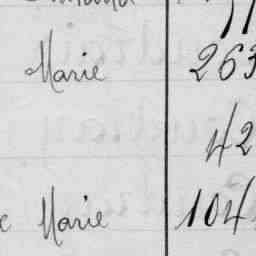 Marie 263
42
Marie 104